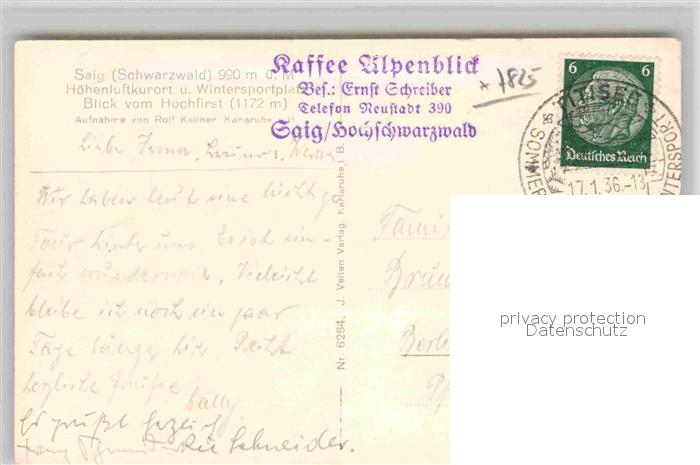 Saig (Schwarzwald) 990 m ü. M
Höhenluftkurort u. Wintersportplatz
Blick vom Hochfirst (1172 m)
Aufnahme von Rolf Kellner Karlsruhe
Kaffee Alpenblick
Bes.: Ernst Schreiber
Telefon Neustadt 390
Saig/Hochschwarzwald
*7825
6 6
Deutsches Reich
TITISEE
SOMMER
WINTERSPORT
17.1.36.-13
Liebe Werner
Wir haben heut eine tüchtige
Tour hinter uns. Es ist ein-
fach wundervoll. Vielleicht
bleibe ich noch ein paar
Tage länger hier. Recht
herzliche Grüße
Es grüßt herzlich
Schneider.
Nr 6264. J. Velten Verlag, Karlsruhe i. B.
Famil
Brun
Berli
privacy protection
Datenschutz